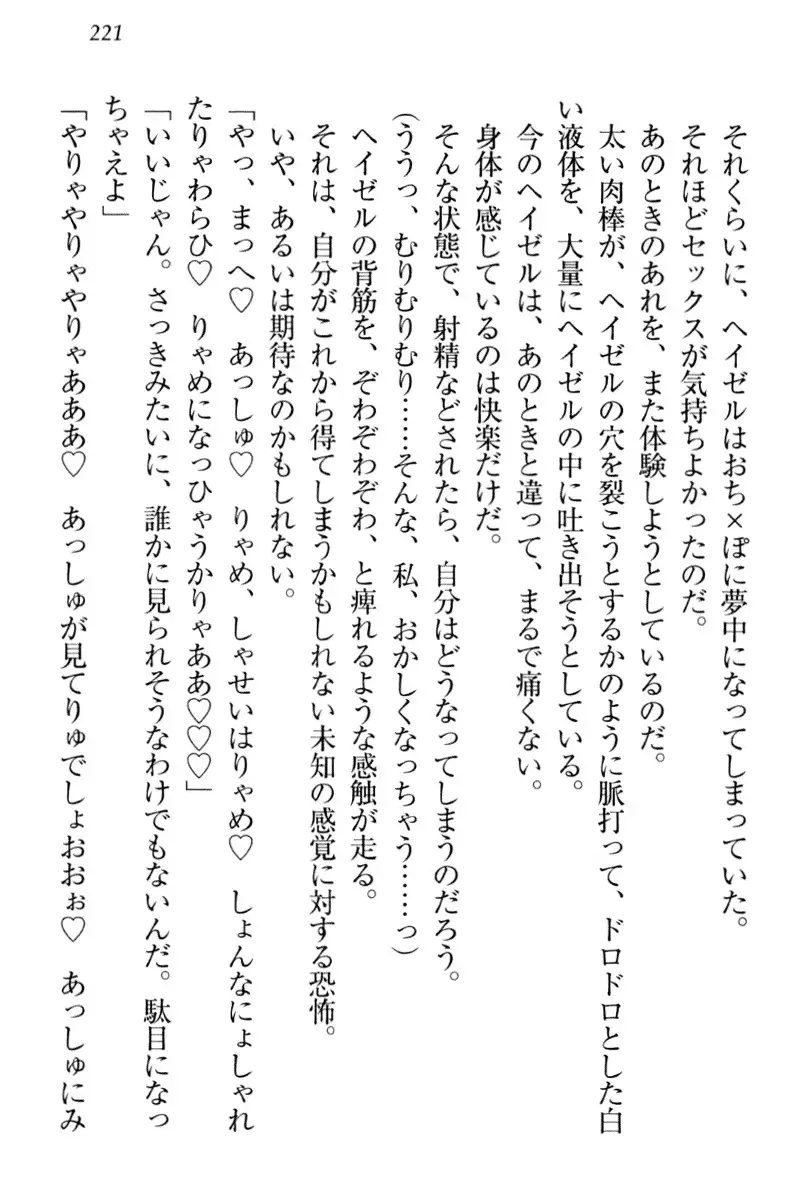 221
それくらいに、ヘイゼルはおち×ぽに夢中になってしまっていた。
それほどセックスが気持ちよかったのだ。
あのときのあれを、また体験しようとしているのだ。
太い肉棒が、ヘイゼルの穴を裂こうとするかのように脈打って、ドロドロとした白
い液体を、大量にヘイゼルの中に吐き出そうとしている。
今のヘイゼルは、あのときと違って、まるで痛くない。
身体が感じているのは快楽だけだ。
そんな状態で、射精などされたら、自分はどうなってしまうのだろう。
(ううっ、むりむりむり……そんな、私、おかしくなっちゃう……っ)
ヘイゼルの背筋を、ぞわぞわぞわ、と痺れるような感触が走る。
それは、自分がこれから得てしまうかもしれない未知の感覚に対する恐怖。
いや、あるいは期待なのかもしれない。
「やっ、まっへ♡　あっしゅ♡　りゃめ、しゃせいはりゃめ♡　しょんなにょしゃれ
たりゃわらひ♡　りゃめになっひゃうかりゃああ♡♡♡」
「いいじゃん。さっきみたいに、誰かに見られそうなわけでもないんだ。駄目になっ
ちゃえよ」
「やりゃやりゃやりゃあああ♡　あっしゅが見てりゅでしょおおぉ♡　あっしゅにみ